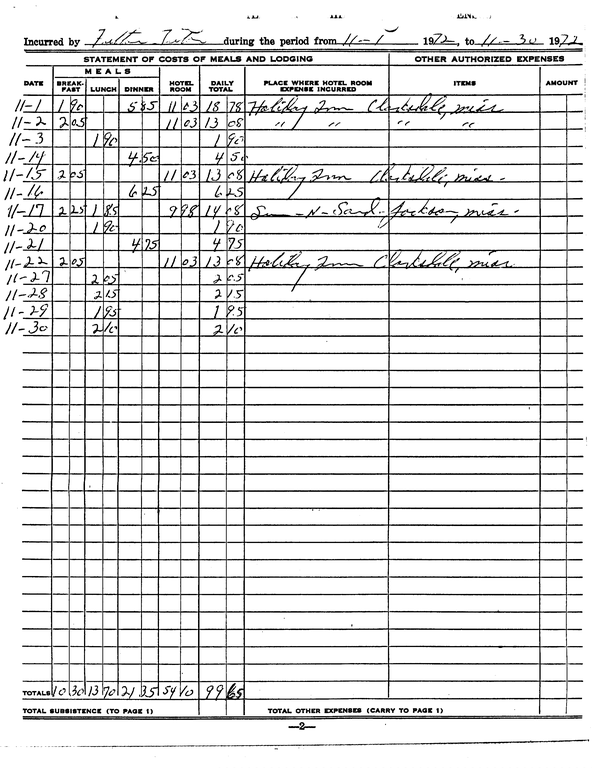 Incurred by Fulton Tutor during the period from 11-1 1972, to 11-30 1972
STATEMENT OF COSTS OF MEALS AND LODGING OTHER AUTHORIZED EXPENSES
MEALS
DATE BREAK-FAST LUNCH DINNER HOTEL ROOM DAILY TOTAL PLACE WHERE HOTEL ROOM EXPENSE INCURRED ITEMS AMOUNT
11-1 1 90 5 85 11 03 18 78 Holiday Inn Clarksdale, miss
11-2 2 05 11 03 13 08 " " " "
11-3 1 90 1 90
11-14 4.50 4 50
11-15 2 05 11 03 13 08 Holiday Inn Clarksdale, miss.
11-16 6 25 6 25
11-17 2 25 1 85 9 98 14 08 Sun-N-Sand. Jackson, miss.
11-20 1 90 1 90
11-21 4 75 4 75
11-22 2 05 11 03 13 08 Holiday Inn Clarksdale, miss.
11-27 2 05 2 05
11-28 2 15 2 15
11-29 1 95 1 95
11-30 2 10 2 10
TOTALS 10 30 13 70 21 35 54 10 99 65
TOTAL SUBSISTENCE (TO PAGE 1) TOTAL OTHER EXPENSES (CARRY TO PAGE 1)
—2—